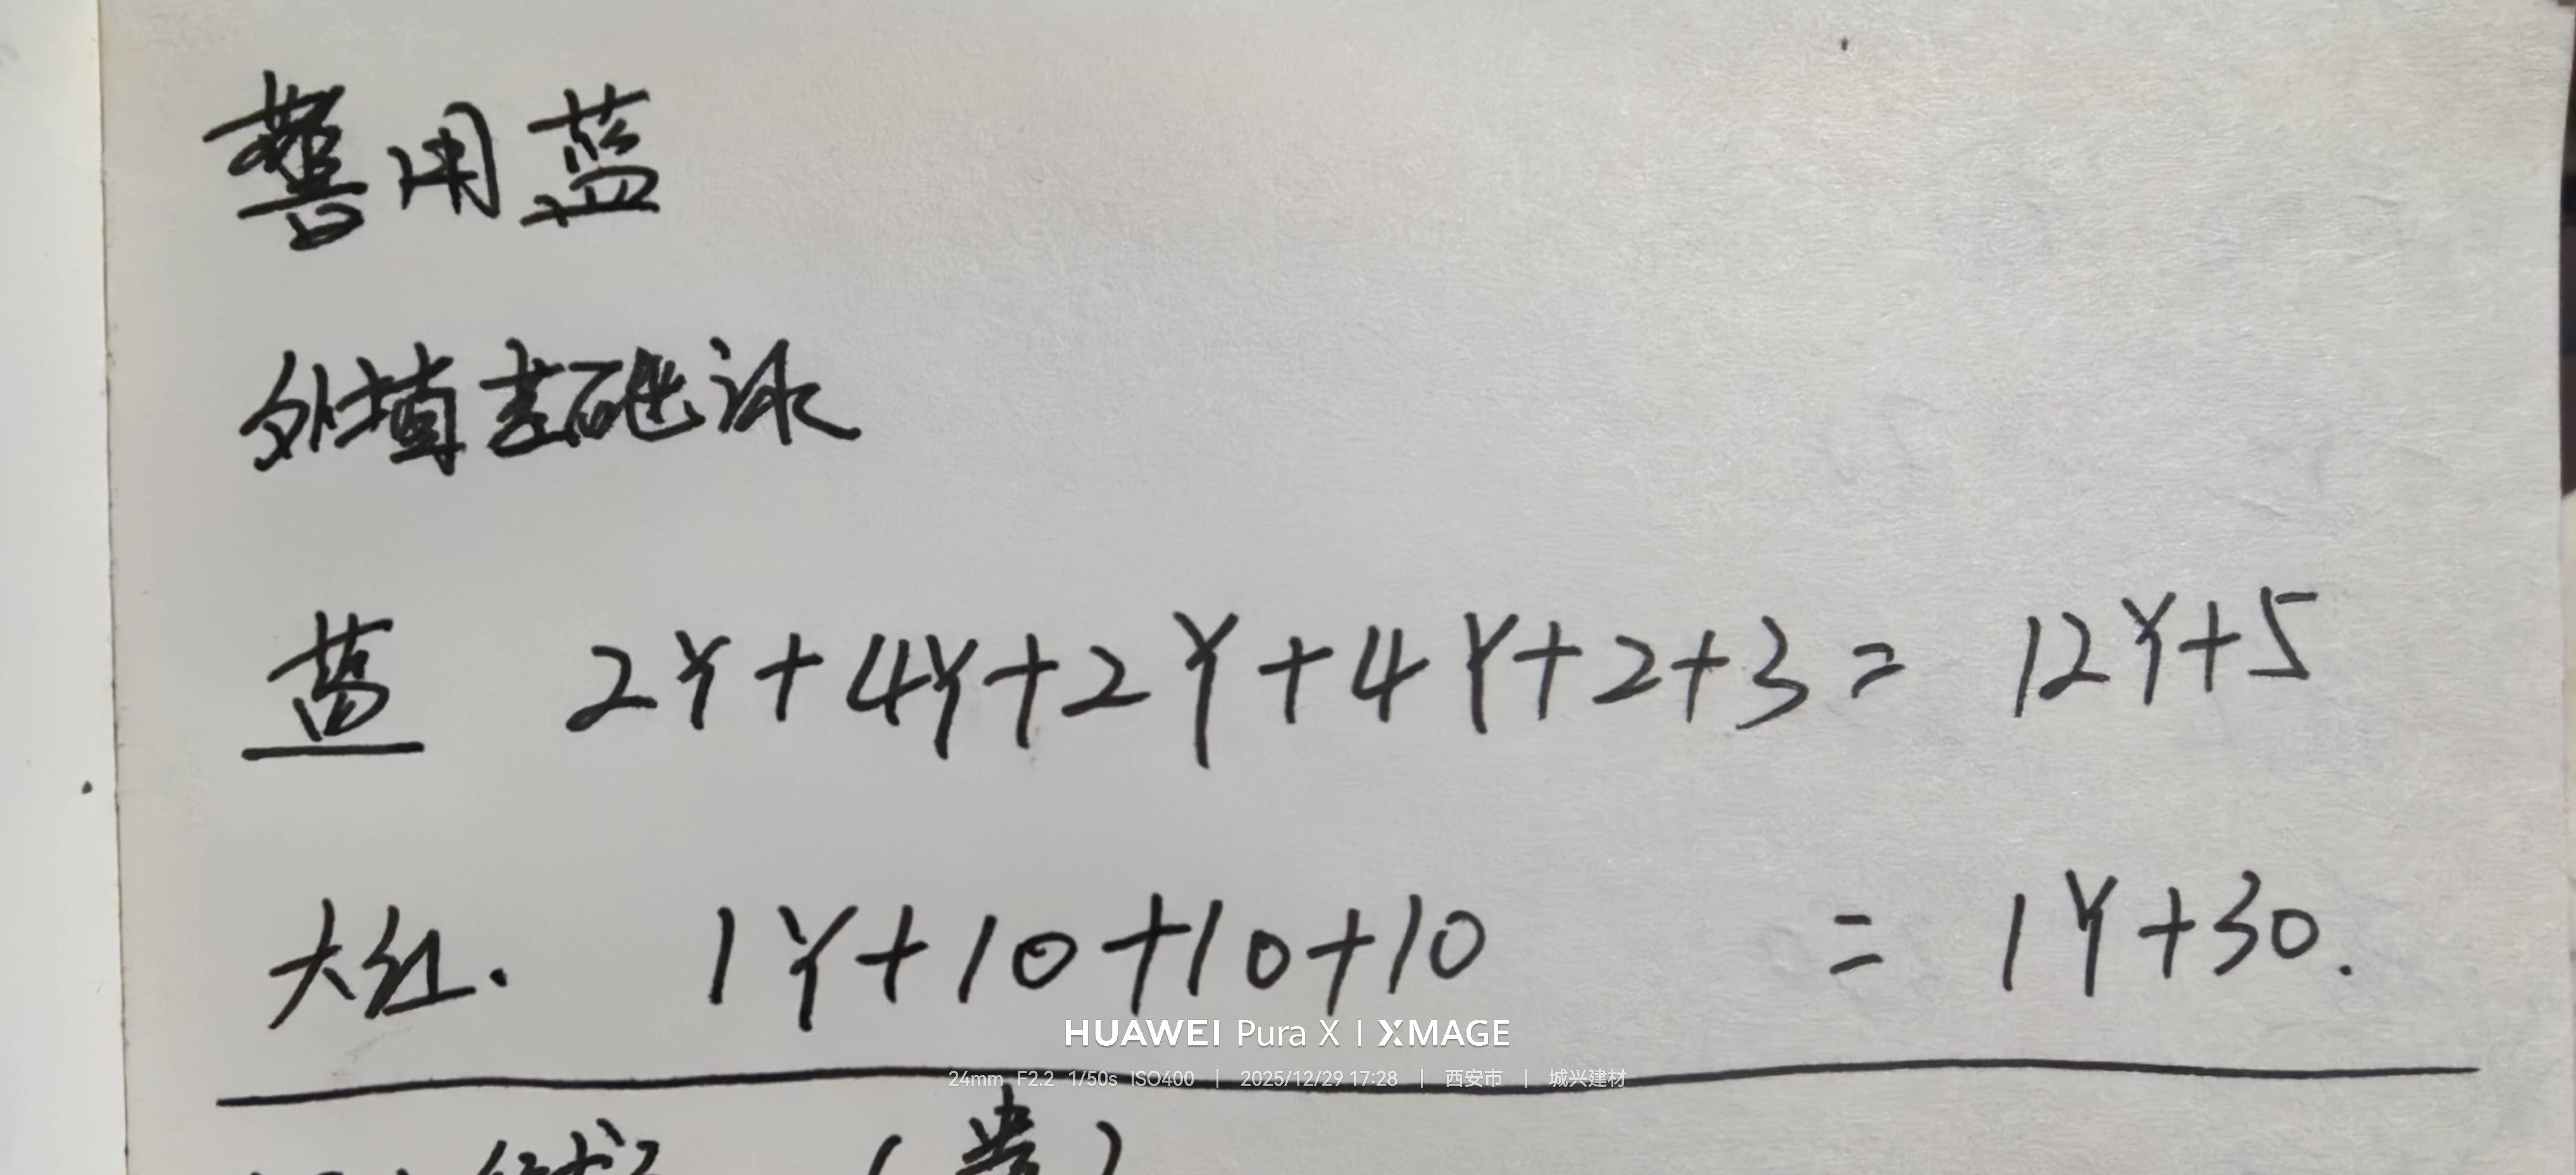 警用蓝
外墙基础漆
蓝 2Y+4Y+2Y+4Y+2+3= 12Y+5
大红. 1Y+10+10+10 = 1Y+30.
HUAWEI Pura X | XMAGE
24mm F2.2 1/50s ISO400 | 2025/12/29 17:28 | 西安市 | 城兴建材